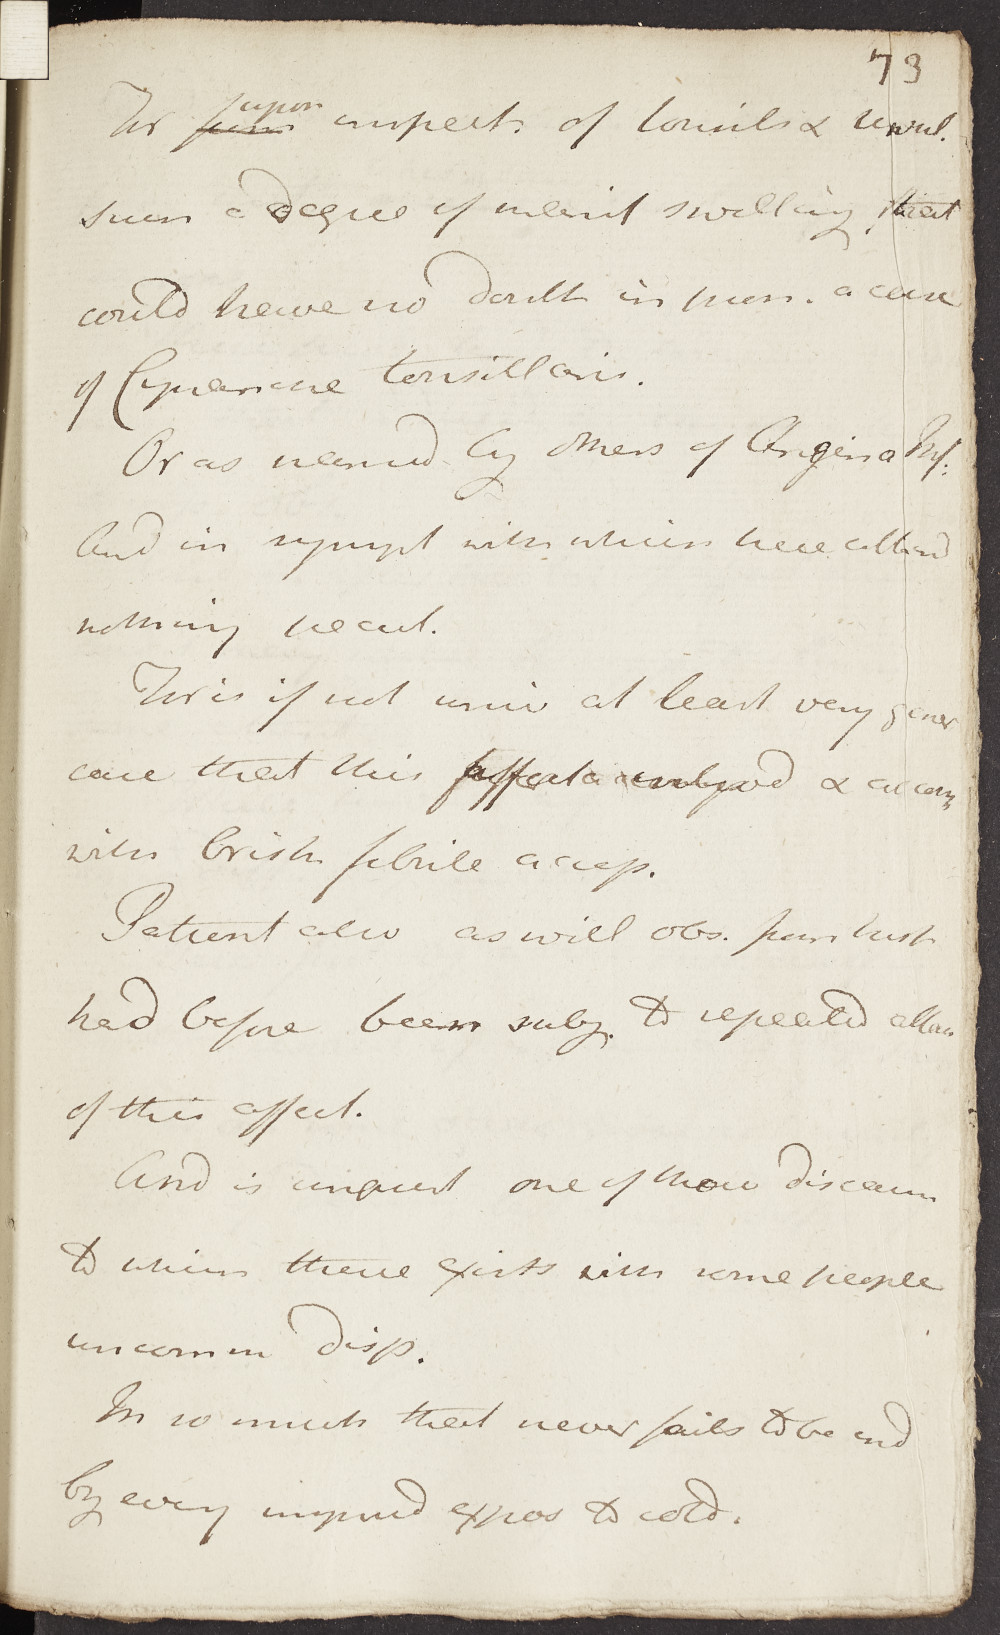 73
For upon inspect. of tonsils & uvul.
seen a degree of inlerist swelling that
could have no doubt in pron. a case
of Cynanche tonsillaris.
Or as named by others of Angina Inf.
And in sympt with which here attend
nothing pecul.
For is if not univ at least very gener
case that this affect & accom
with brisk febrile accep.
Patient also as will obs. from hist
had before been subj. to repeated attacs
of this affect.
And is unquest one of those diseases
to which there exists with some people
uncomm disp.
In so much that never fails to be ind
by every imprud expos to cold.